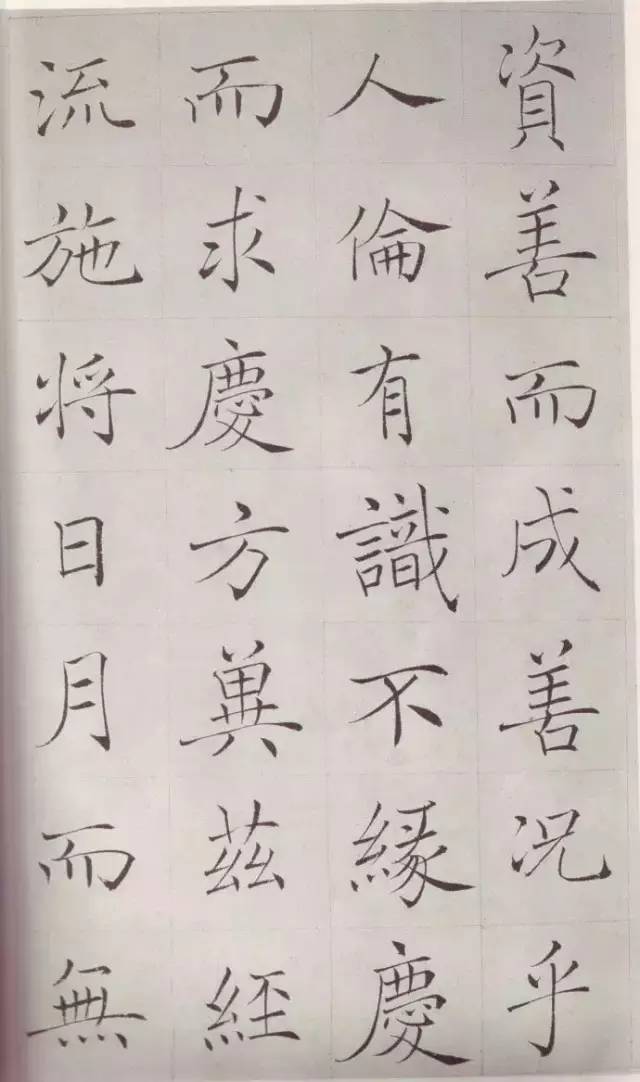 資善而成善况乎
人倫有識不緣慶
而求慶方冀兹經
流施将日月而無